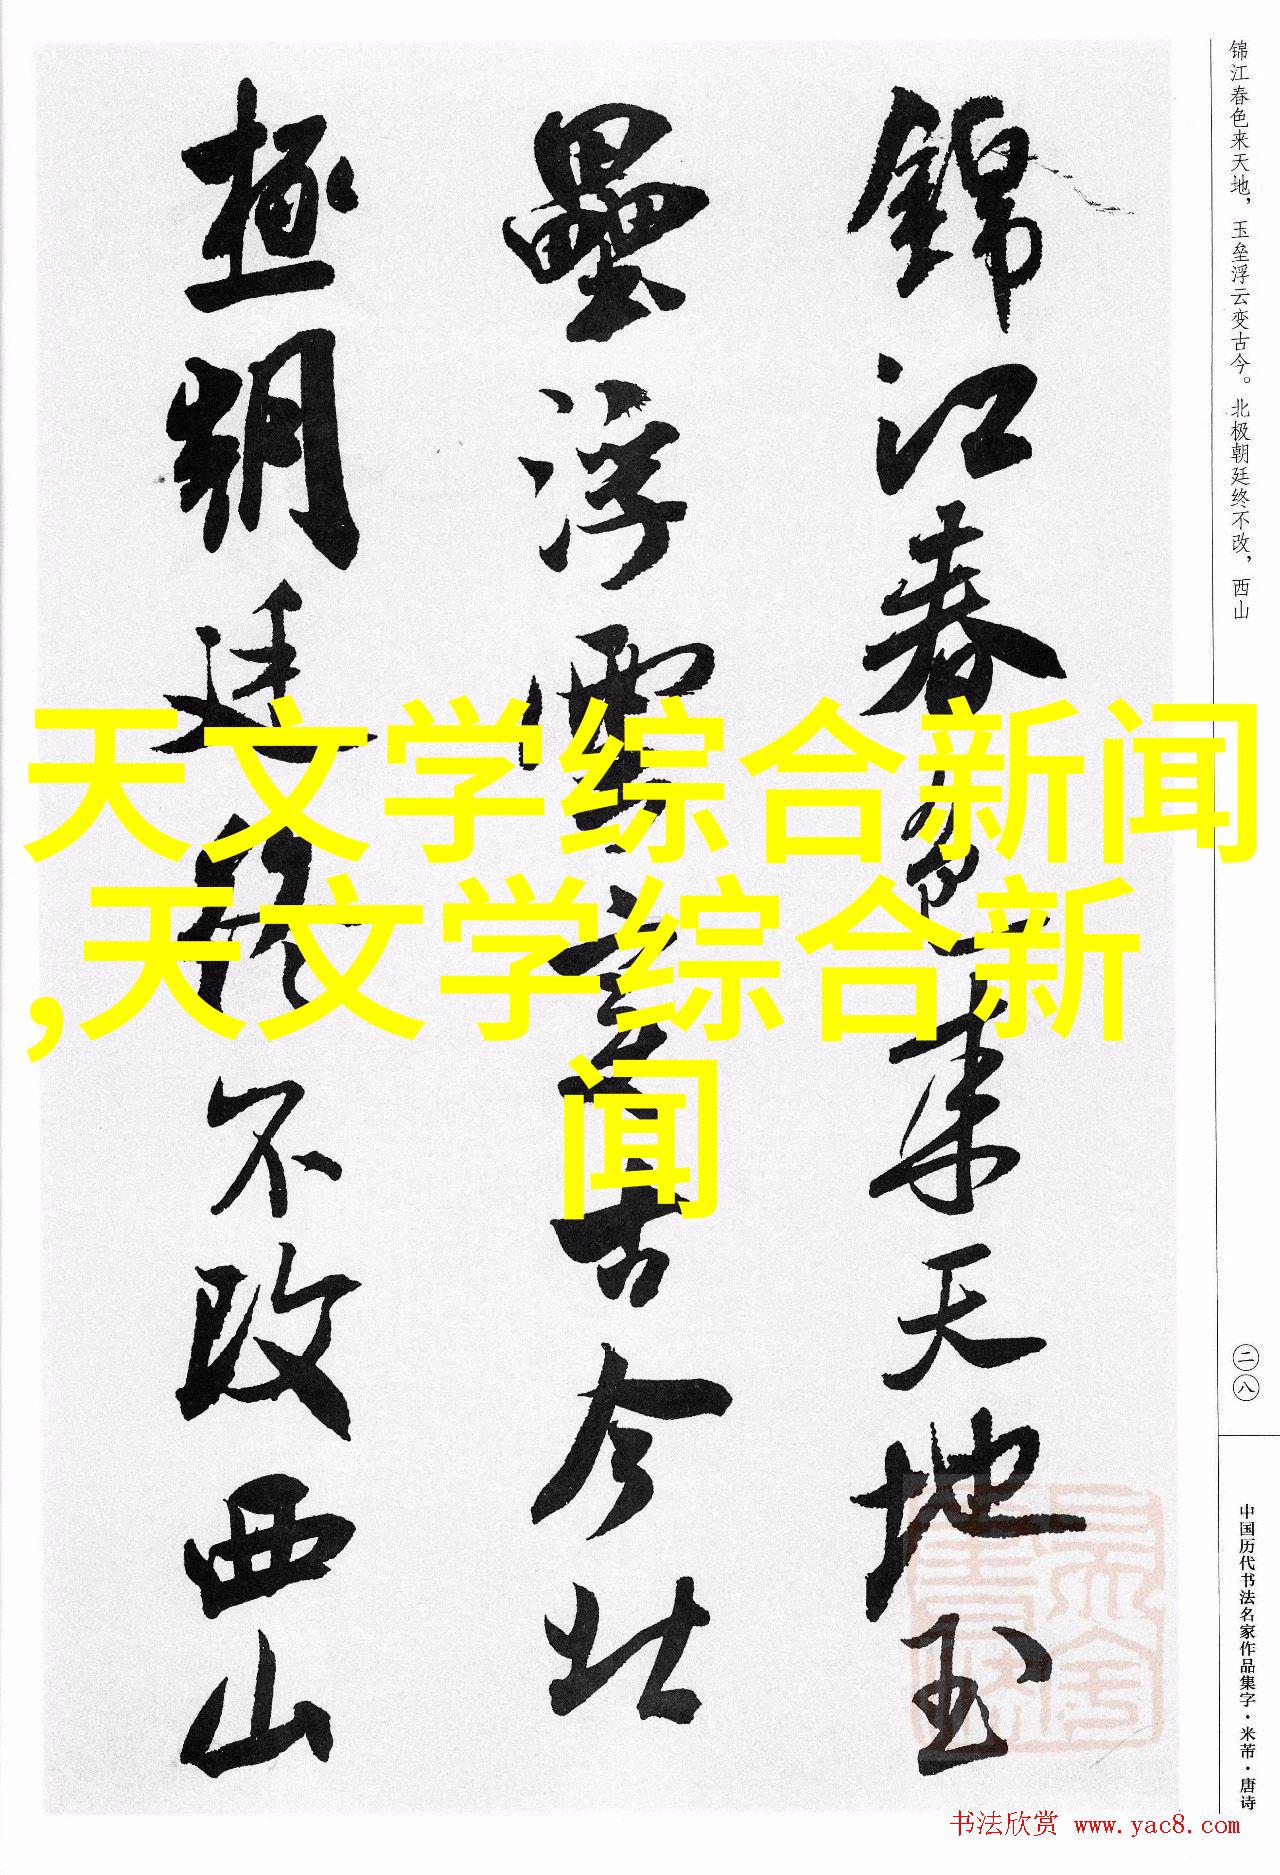 锦江春色来天地，玉垒浮云变古今。北极朝廷终不改，西山
錦江春色来天地玉
壘浮雲变古今北
極朝廷終不改西山
天文学综合新闻
,天文学综合新
闻
二八
中国历代书法名家作品集字·米芾·唐诗
书法欣赏 www.yac8.com